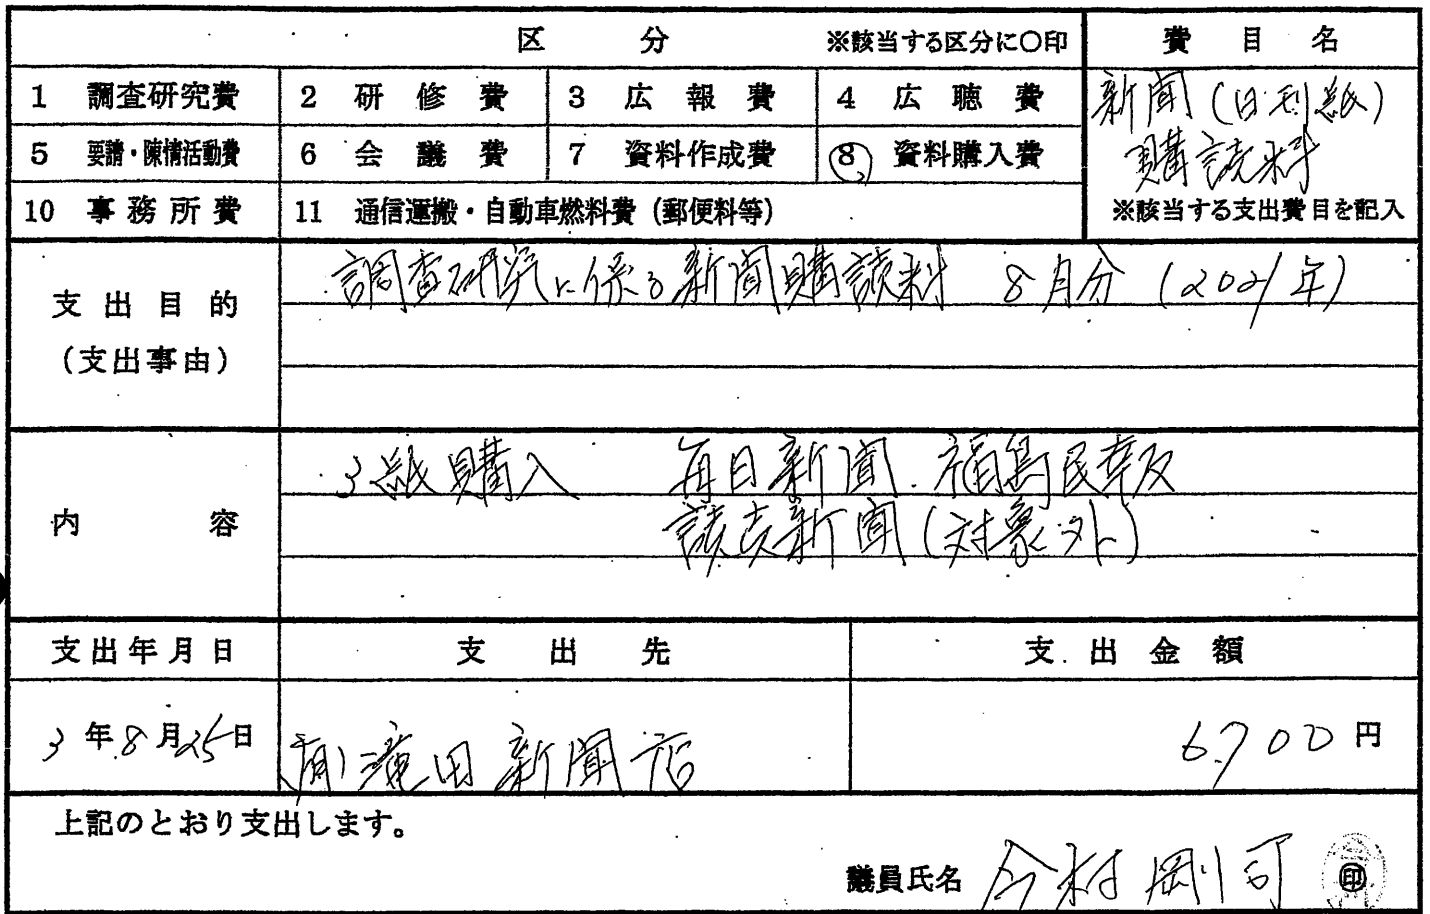 区 分 ※該当する区分に○印 費 目 名
1 調査研究費 2 研 修 費 3 広 報 費 4 広 聴 費
新聞(日刊紙)
5 要請・陳情活動費 6 会 議 費 7 資料作成費 8 資料購入費
購読料
10 事 務 所 費 11 通信運搬・自動車燃料費(郵便料等) ※該当する支出費目を記入
調査研究に係る新聞購読料 8月分(2021年)
支 出 目 的
(支出事由)
3紙購入 毎日新聞.福島民報及
内 容 読売新聞(対象外)
支出年月日 支 出 先 支 出 金 額
3年8月25日 (有)滝田新聞店 6700円
上記のとおり支出します。
議員氏名 今村剛司 印